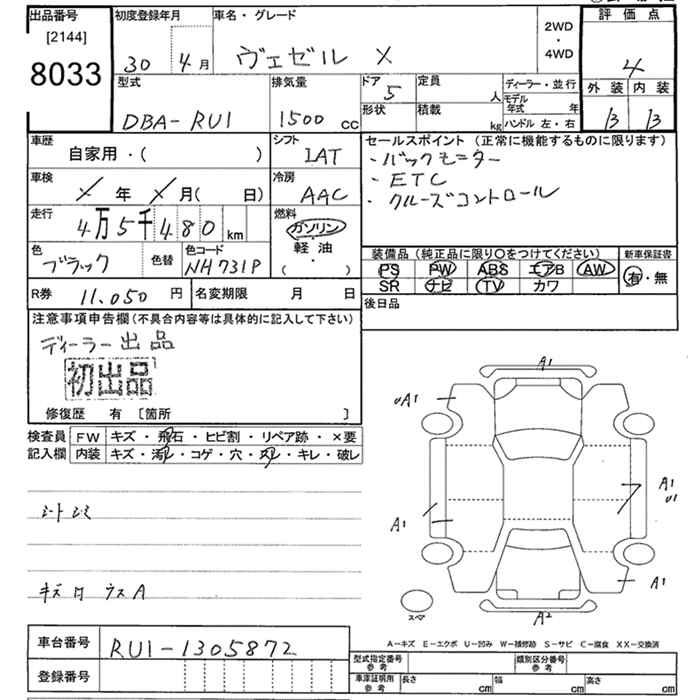 出品番号
[2144]
8033
初度登録年月
30 4月
車名・グレード
ヴェゼル X
2WD
・
4WD
評価点
4
外装 内装
B B
型式
DBA-RU1
排気量
1500 cc
ドア
5
定員
人
形状
積載
kg
ディーラー・並行
モデル年式 年
ハンドル 左・右
車歴
自家用・( )
シフト
IAT
セールスポイント (正常に機能するものに限ります)
・バックモニター
・ETC
・クルーズコントロール
車検
年 月( 日)
冷房
AAC
走行
4万5千480km
燃料
ガソリン
・
軽油
( )
色
ブラック
色替
色コード
NH731P
装備品 (純正品に限り○をつけてください)
PS PW ABS エアB AW
SR ナビ TV カワ
新車保証書
有・無
R券 11,050 円
名変期限 月 日
後日品
注意事項申告欄 (不具合内容等は具体的に記入して下さい)
ディーラー出品
初出品
修復歴 有 [箇所 ]
検査員
記入欄
FW キズ・飛石・ヒビ割・リペア跡・×要
内装 キズ・汚れ・コゲ・穴・スレ・キレ・破レ
シートシミ
キズ ウスA
A1
UA1
A1
U1
A1
A1
スペア
A2
A-キズ E-エクボ U-凹み W-補修跡 S-サビ C-腐食 XX-交換済
車台番号 RU1-1305872
登録番号
型式指定番号
参考
類別区分番号
参考
車庫証明用
参考
長さ cm 幅 cm 高さ cm